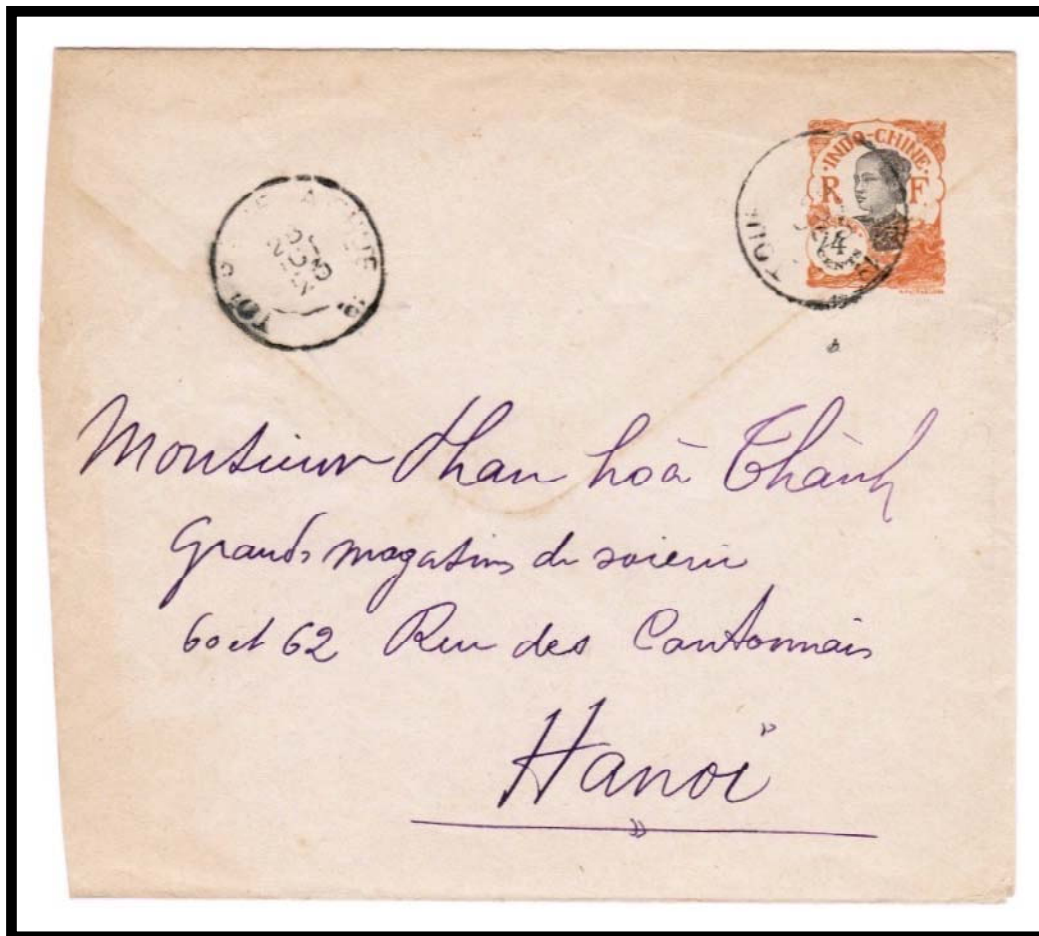 INDO-CHINE
R F
4
Monsieur hoà Thành
Grands magasins de soierie
60 et 62 Rue des Cantonnais
Hanoï